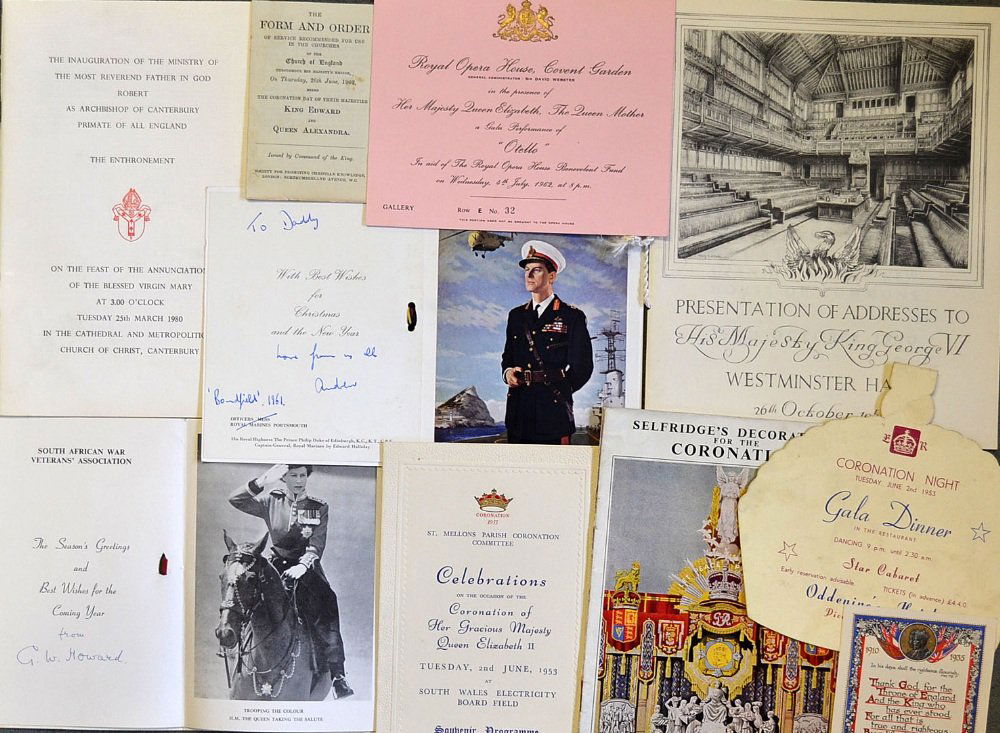 THE INAUGURATION OF THE MINISTRY OF
THE MOST REVEREND FATHER IN GOD
ROBERT
AS ARCHBISHOP OF CANTERBURY
PRIMATE OF ALL ENGLAND
THE ENTHRONEMENT
ON THE FEAST OF THE ANNUNCIATION
OF THE BLESSED VIRGIN MARY
AT 3.00 O'CLOCK
TUESDAY 25th MARCH 1980
IN THE CATHEDRAL AND METROPOLITIC
CHURCH OF CHRIST, CANTERBURY
THE
FORM AND ORDER
OF SERVICE RECOMMENDED FOR USE
IN THE CHURCHES
OF THE
Church of England
THROUGHOUT HIS MAJESTY'S REALM,
On Thursday, 26th June, 1902,
BEING
THE CORONATION DAY OF THEIR MAJESTIES
KING EDWARD
AND
QUEEN ALEXANDRA.
Issued by Command of the King.
SOCIETY FOR PROMOTING CHRISTIAN KNOWLEDGE,
LONDON: NORTHUMBERLAND AVENUE, W.C.
Royal Opera House, Covent Garden
GENERAL ADMINISTRATOR SIR DAVID WEBSTER
in the presence of
Her Majesty Queen Elizabeth, The Queen Mother
a Gala Performance of
"Otello"
In aid of The Royal Opera House Benevolent Fund
on Wednesday, 4th July, 1962, at 8 p.m.
GALLERY
Row E No. 32
THIS PORTION DOES NOT BE BROUGHT TO THE OPERA HOUSE
PRESENTATION OF ADDRESSES TO
His Majesty King George VI
WESTMINSTER HA
26th October
To Daddy
With Best Wishes
for
Christmas
and the New Year
Love from us all
Andrew
1961.
OFFICERS MESS
ROYAL MARINES PORTSMOUTH
His Royal Highness The Prince Philip Duke of Edinburgh, K.G., K.T., G.B.E.
Captain-General, Royal Marines by Edward Halliday
SOUTH AFRICAN WAR
VETERANS' ASSOCIATION
The Season's Greetings
and
Best Wishes for the
Coming Year
from
G. W. Howard
TROOPING THE COLOUR
H.M. THE QUEEN TAKING THE SALUTE
CORONATION
1953
ST. MELLONS PARISH CORONATION
COMMITTEE
Celebrations
ON THE OCCASION OF THE
Coronation of
Her Gracious Majesty
Queen Elizabeth II
TUESDAY, 2ND JUNE, 1953
AT
SOUTH WALES ELECTRICITY
BOARD FIELD
Souvenir Programme
SELFRIDGE'S DECORAT
FOR THE
CORONATI
GR
E R
CORONATION NIGHT
TUESDAY JUNE 2nd 1953
Gala Dinner
IN THE RESTAURANT
DANCING 9 p.m. until 2.30 a.m.
Star Cabaret
Early reservation advisable.
TICKETS (in advance) £4.4.0
Oddenino's
1910
1935
In his days shall the righteous flourish
Thank God for the
Throne of England
And the King who
has ever stood
For all that is
true and righteous